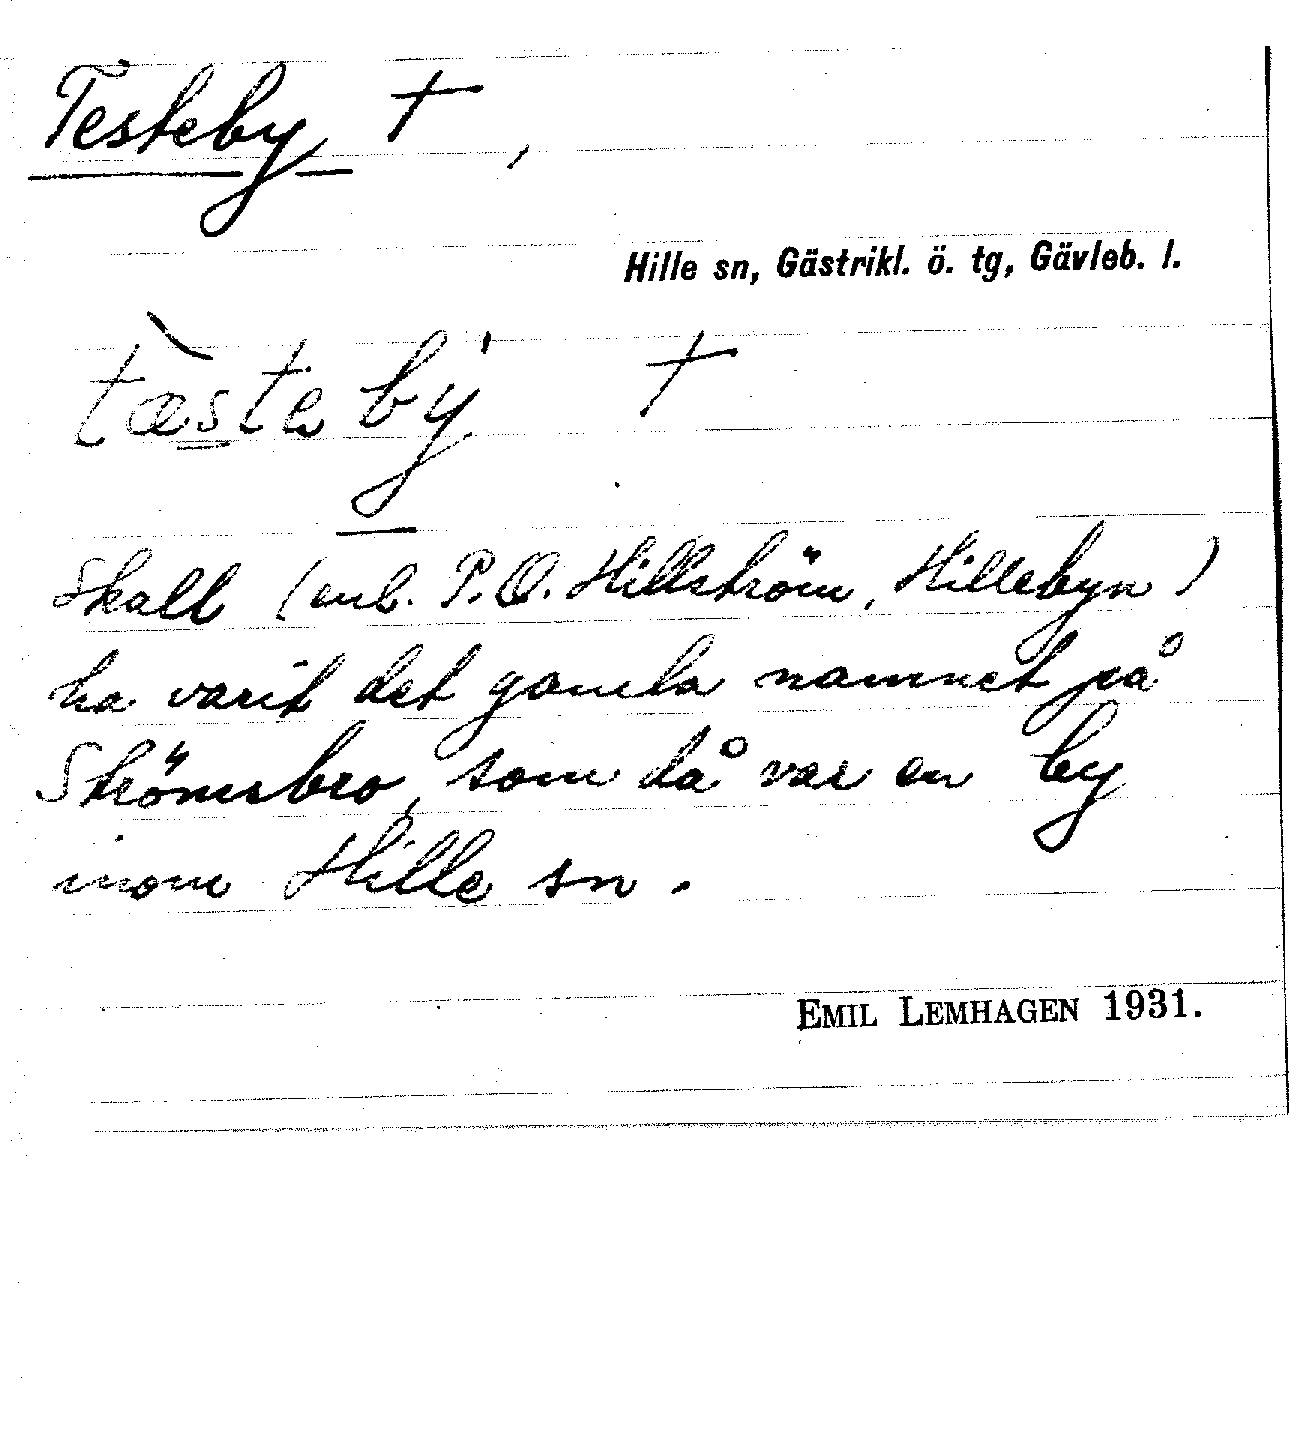 Testeby †,
Hille sn, Gästrikl. ö. tg, Gävleb. l.
tæ̀stebý †
Skall (enl. P.O. Hillström, Hillebyn)
ha varit det gamla namnet på
Strömsbro, som då var en by
inom Hille sn.
EMIL LEMHAGEN 1931.